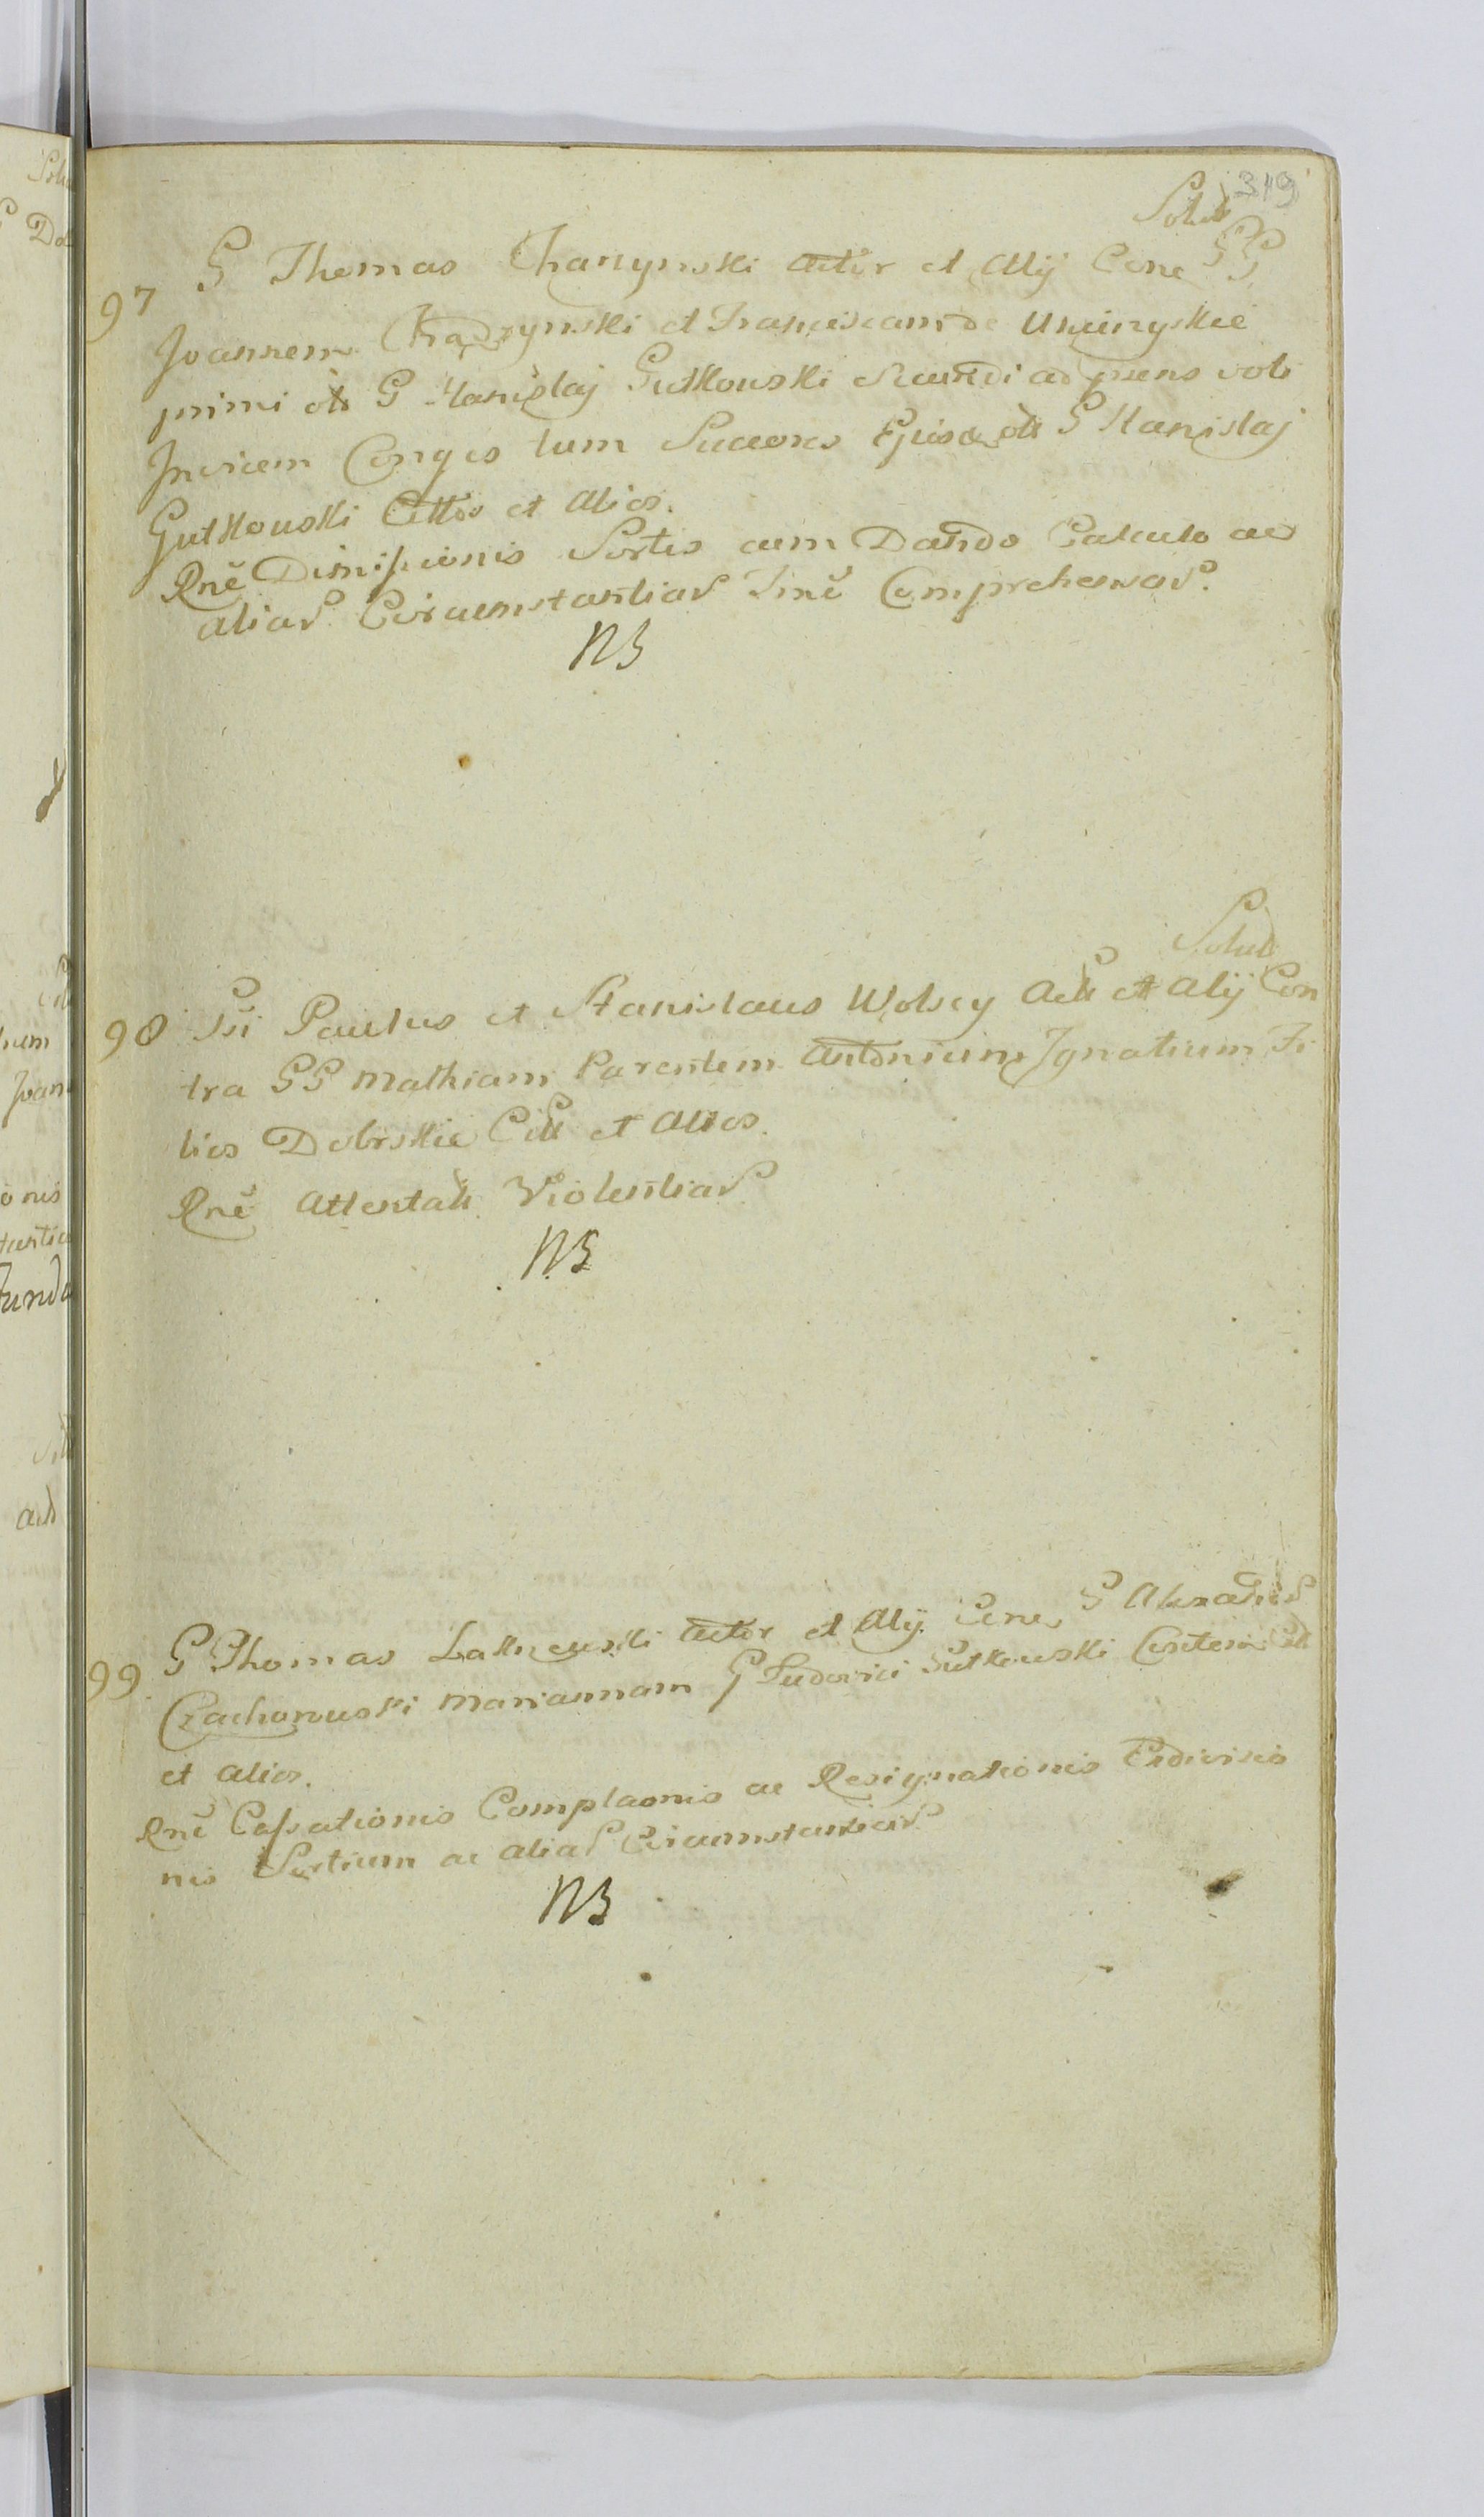 319
Solut
97 G Thomas Charzynski Actor et Alij Cone GG
Joannem Charzynski et Franciscam de Uniczyskie
primi oti G Stanislaj Gutkowski Secundi ad praens voti
Invicem Conges tum Succores Ejusd oti G Stanislaj
Gutkowski Cittos et Alios.
Rnē Dimissionis Sortis cum Dando Calculo ac
aliar Circumstantiar Sinē Comprehensar.
NB
Solut
98 Paulus et Stanislaus Wolscy Act et Alij Con
tra GG Mathiam Parentem Antonium Ignatium Fi
lios Dobrskie Citt et Alios.
Rnē Attentatt Violentiar
NB
99. G Thomas Actor et Alij Cone G
Czachorowski Mariannam G Ludovici Sutkowski Citt
et Alios.
Rnē Cassationis Complaonis ac Resignationis Exdivisio
nis Sortium ac aliar Circumstantiar
NB